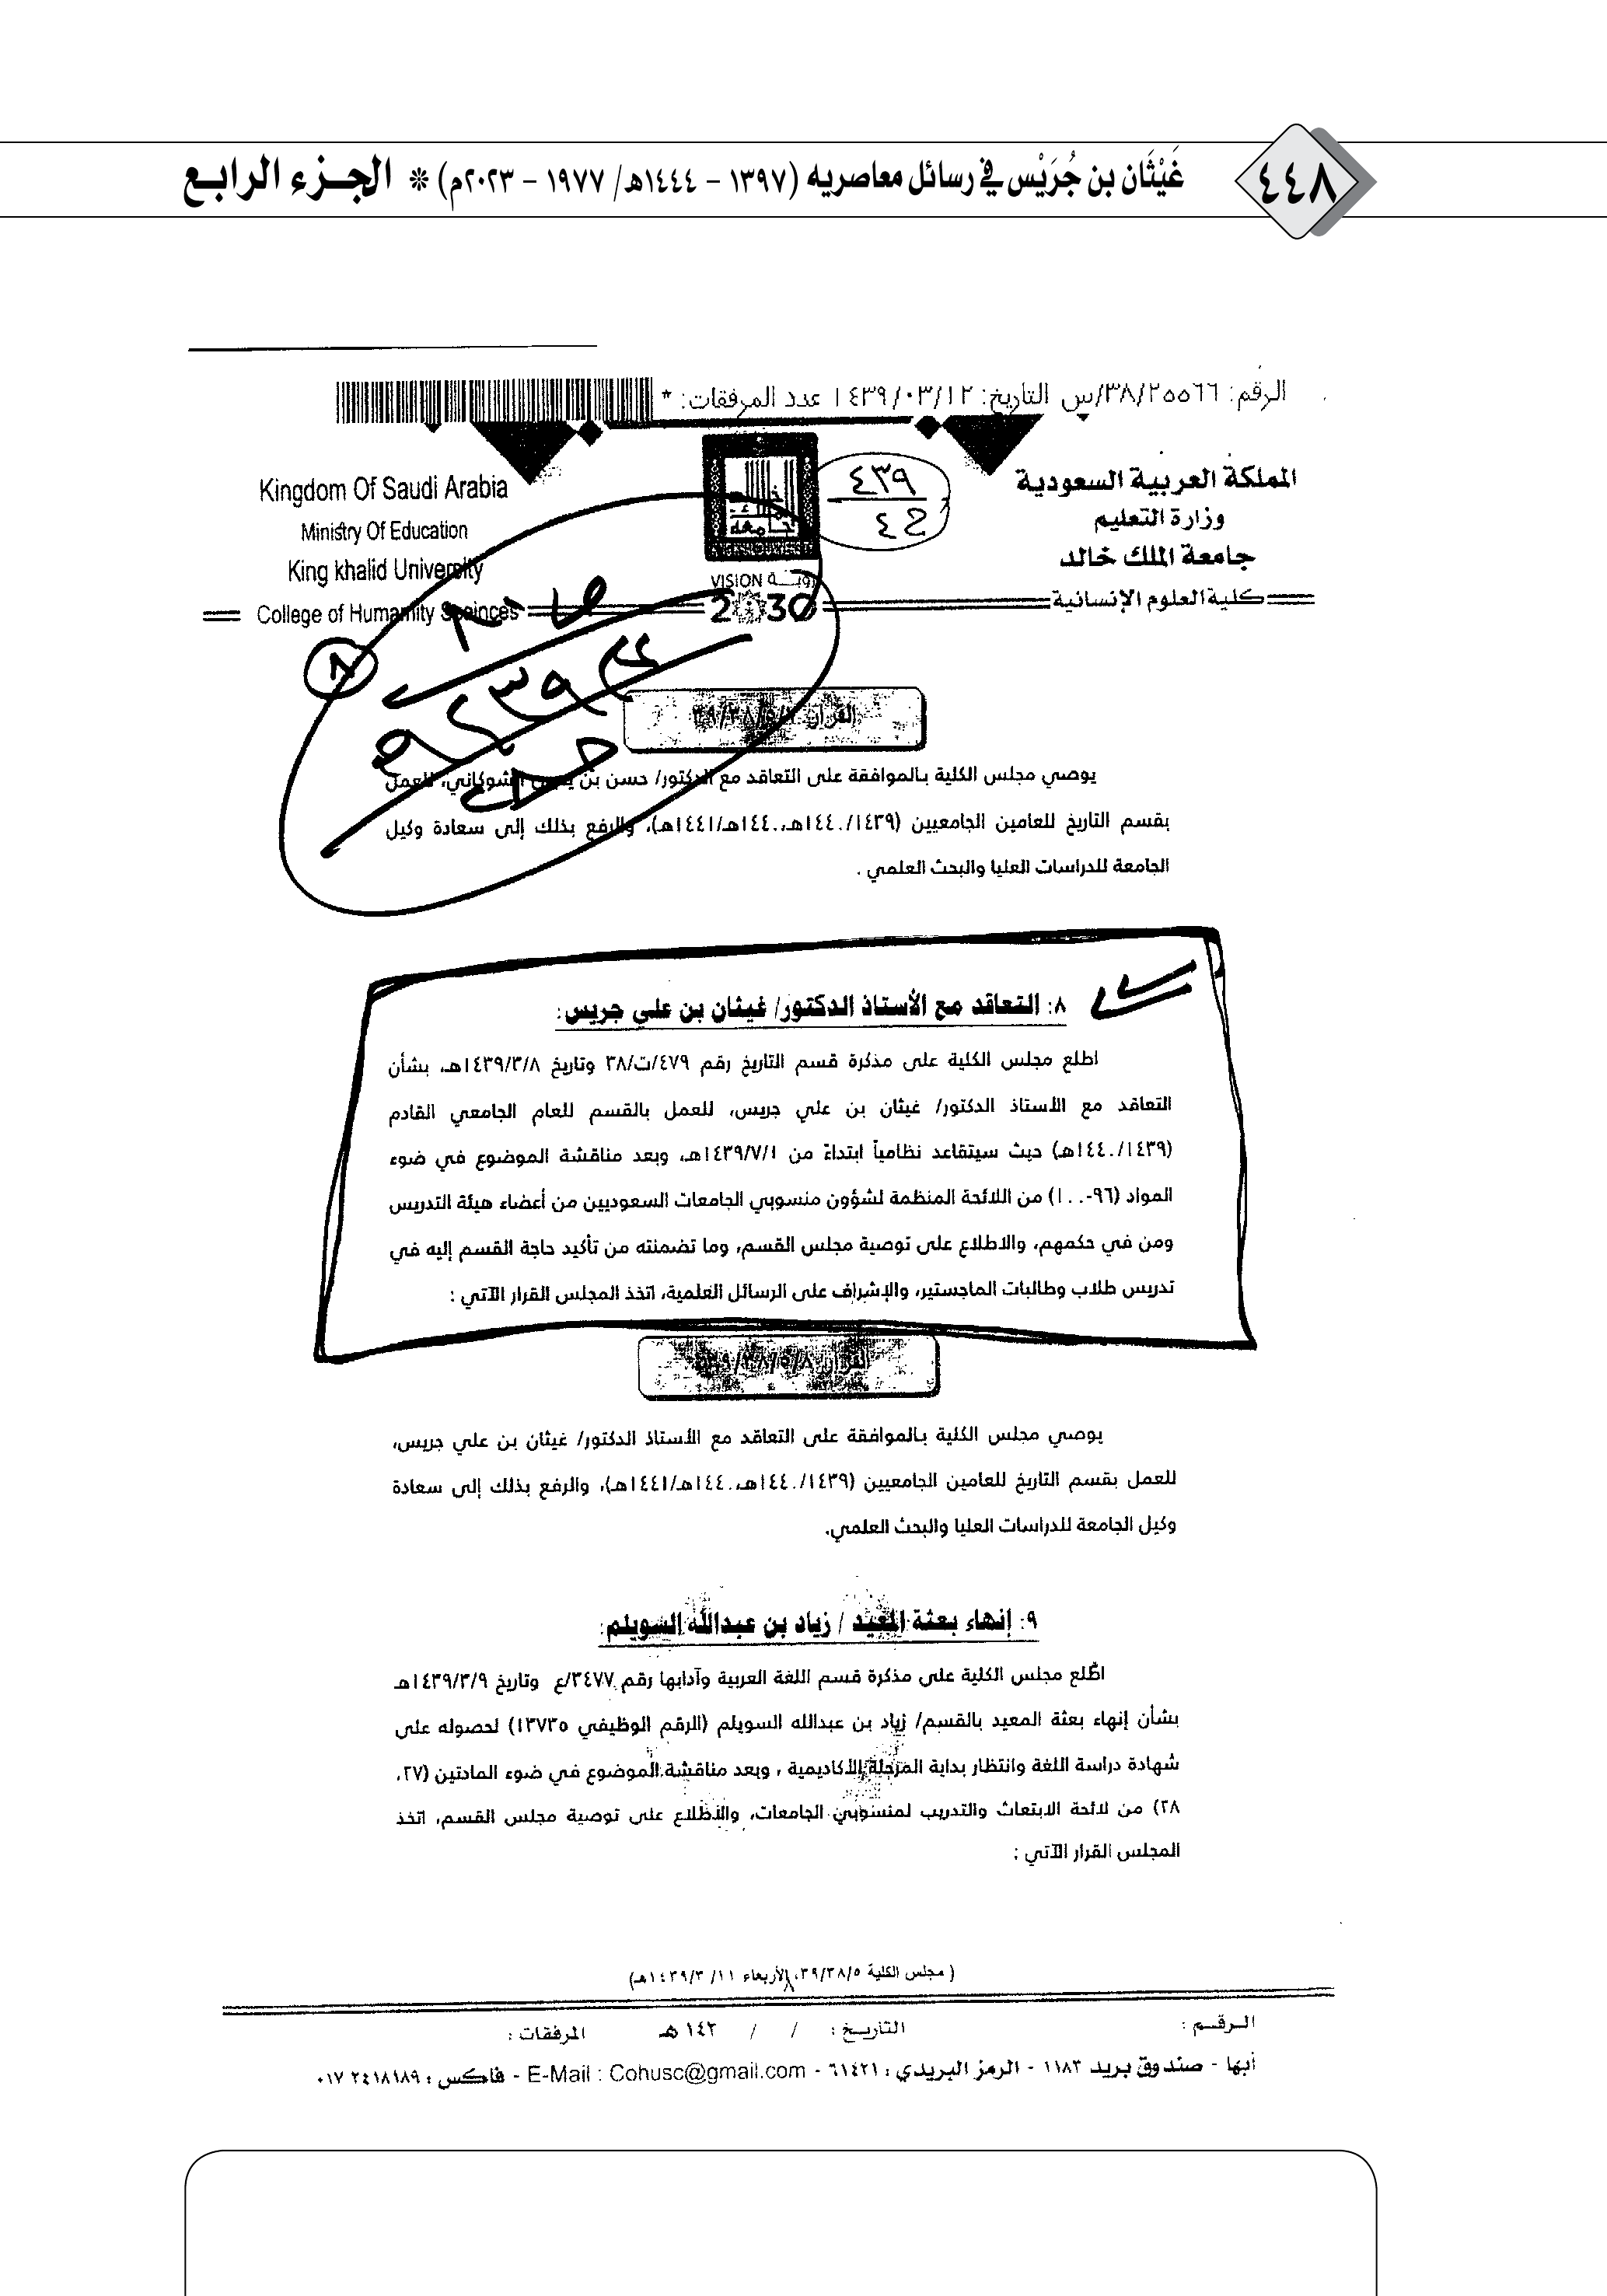 ٤٤٨
غَيْثَان بن جُرَيْس في رسائل معاصريه (١٣٩٧ – ١٤٤٤هـ/ ١٩٧٧ – ٢٠٢٣م) * الجزء الرابع
الرقم: ٣٨/٢٥٥٦٦/س التاريخ: ١٤٣٩/٠٣/١٢ عدد المرفقات: *
المملكة العربية السعودية
وزارة التعليم
جامعة الملك خالد
كلية العلوم الإنسانية
٤٣٩
VISION رؤيـــة
2030
Kingdom Of Saudi Arabia
Ministry Of Education
King khalid University
College of Humanity Sceinces
٨
يوصي مجلس الكلية بالموافقة على التعاقد مع الدكتور/ حسن بن يحيى الشوكاني، للعمل
بقسم التاريخ للعامين الجامعيين (١٤٣٩/١٤٤٠هـ، ١٤٤٠هـ/١٤٤١هـ)، والرفع بذلك إلى سعادة وكيل
الجامعة للدراسات العليا والبحث العلمي .
٨: التعاقد مع الأستاذ الدكتور/ غيثان بن علي جريس:
اطلع مجلس الكلية على مذكرة قسم التاريخ رقم ٤٧٩/ت/٣٨ وتاريخ ١٤٣٩/٣/٨هـ، بشأن
التعاقد مع الأستاذ الدكتور/ غيثان بن علي جريس، للعمل بالقسم للعام الجامعي القادم
(١٤٣٩/١٤٤٠هـ) حيث سيتقاعد نظامياً ابتداءً من ١٤٣٩/٧/١هـ، وبعد مناقشة الموضوع في ضوء
المواد (٩٦-١٠٠) من اللائحة المنظمة لشؤون منسوبي الجامعات السعوديين من أعضاء هيئة التدريس
ومن في حكمهم، والاطلاع على توصية مجلس القسم، وما تضمنته من تأكيد حاجة القسم إليه في
تدريس طلاب وطالبات الماجستير، والإشراف على الرسائل العلمية، اتخذ المجلس القرار الآتي :
القرار ٣٩/٣٨/٥/٨
يوصي مجلس الكلية بالموافقة على التعاقد مع الأستاذ الدكتور/ غيثان بن علي جريس،
للعمل بقسم التاريخ للعامين الجامعيين (١٤٣٩/١٤٤٠هـ، ١٤٤٠هـ/١٤٤١هـ)، والرفع بذلك إلى سعادة
وكيل الجامعة للدراسات العليا والبحث العلمي.
٩: إنهاء بعثة المعيد / زياد بن عبدالله السويلم:
اطّلع مجلس الكلية على مذكرة قسم اللغة العربية وآدابها رقم ٣٤٧٧/ع وتاريخ ١٤٣٩/٣/٩هـ
بشأن إنهاء بعثة المعيد بالقسم/ زياد بن عبدالله السويلم (الرقم الوظيفي ١٣٧٣٥) لحصوله على
شهادة دراسة اللغة وانتظار بداية المرحلة الأكاديمية ، وبعد مناقشة الموضوع في ضوء المادتين (٢٧،
٢٨) من لائحة الابتعاث والتدريب لمنسوبي الجامعات، والاطلاع على توصية مجلس القسم، اتخذ
المجلس القرار الآتي :
( مجلس الكلية ٣٩/٣٨/٥، الأربعاء ١٤٣٩/٣/١١هـ)
الـرقـم : التاريـخ : / / ١٤٣ هـ المرفقات :
أبها - صندوق بريد ١١٨٣ - الرمز البريدي : ٦١٤٢١ - E-Mail : Cohusc@gmail.com - فاكس : ٠١٧ ٢٤١٨١٨٩